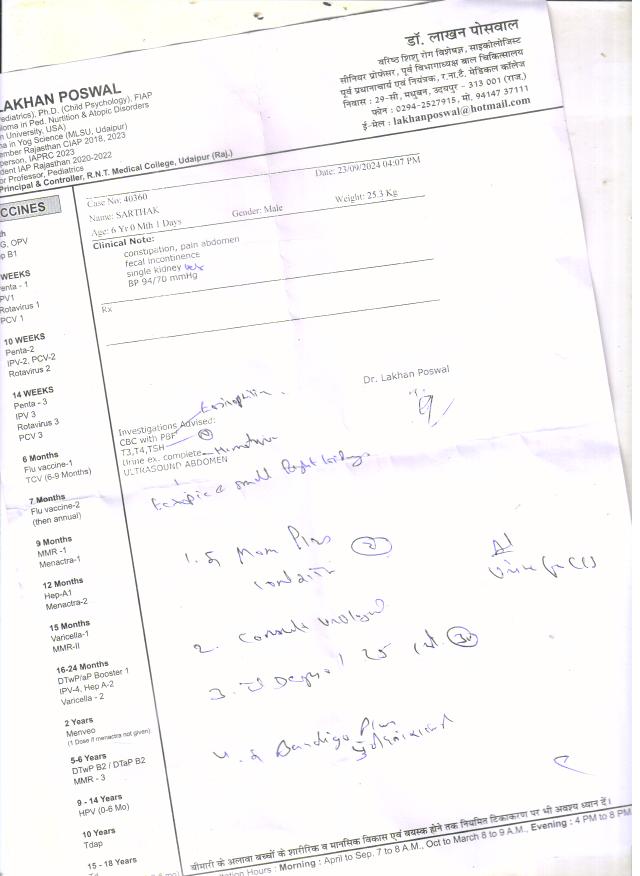 डॉ. लाखन पोसवाल
वरिष्ठ शिशु रोग विशेषज्ञ, साइकोलोजिस्ट
सीनियर प्रोफेसर, पूर्व विभागाध्यक्ष बाल चिकित्सालय
पूर्व प्रधानाचार्य एवं नियंत्रक, र.ना.टै. मेडिकल कॉलेज
निवास : 29-सी, मधुबन, उदयपुर - 313 001 (राज.)
फोन : 0294-2527915, मो. 94147 37111
ई-मेल : lakhanposwal@hotmail.com
LAKHAN POSWAL
ediatrics), Ph.D. (Child Psychology), FIAP
loma in Ped. Nurtition & Atopic Disorders
n University, USA)
a in Yog Science (MLSU, Udaipur)
ember Rajasthan CIAP 2018, 2023
person, IAPRC 2023
dent IAP Rajasthan 2020-2022
or Professor, Pediatrics
Principal & Controller, R.N.T. Medical College, Udaipur (Raj.)
Date: 23/09/2024 04:07 PM
Case No: 40360
Name: SARTHAK
Gender: Male
Weight: 25.3 Kg
Age: 6 Yr 0 Mth 1 Days
Clinical Note:
constipation, pain abdomen
fecal incontinence
single kidney
BP 94/70 mmHg
Rx
Dr. Lakhan Poswal
Investigations Advised:
CBC with PBF
T3,T4,TSH
Urine ex. complete
ULTRASOUND ABDOMEN
small Right kidney
1.
Plus
2. Consult
3.
25
4.
Plus
CCINES
G, OPV
p B1
WEEKS
enta - 1
PV1
Rotavirus 1
PCV 1
10 WEEKS
Penta-2
IPV-2, PCV-2
Rotavirus 2
14 WEEKS
Penta - 3
IPV 3
Rotavirus 3
PCV 3
6 Months
Flu vaccine-1
TCV (6-9 Months)
7 Months
Flu vaccine-2
(then annual)
9 Months
MMR -1
Menactra-1
12 Months
Hep-A1
Menactra-2
15 Months
Varicella-1
MMR-II
16-24 Months
DTwP/aP Booster 1
IPV-4, Hep A-2
Varicella - 2
2 Years
Menveo
(1 Dose if menactra not given)
5-6 Years
DTwP B2 / DTaP B2
MMR - 3
9 - 14 Years
HPV (0-6 Mo)
10 Years
Tdap
15 - 18 Years
बीमारी के अलावा बच्चों के शारीरिक व मानसिक विकास एवं वयस्क होने तक नियमित टिकाकरण पर भी अवश्य ध्यान दें।
tation Hours : Morning : April to Sep. 7 to 8 A.M., Oct to March 8 to 9 A.M., Evening : 4 PM to 8 PM